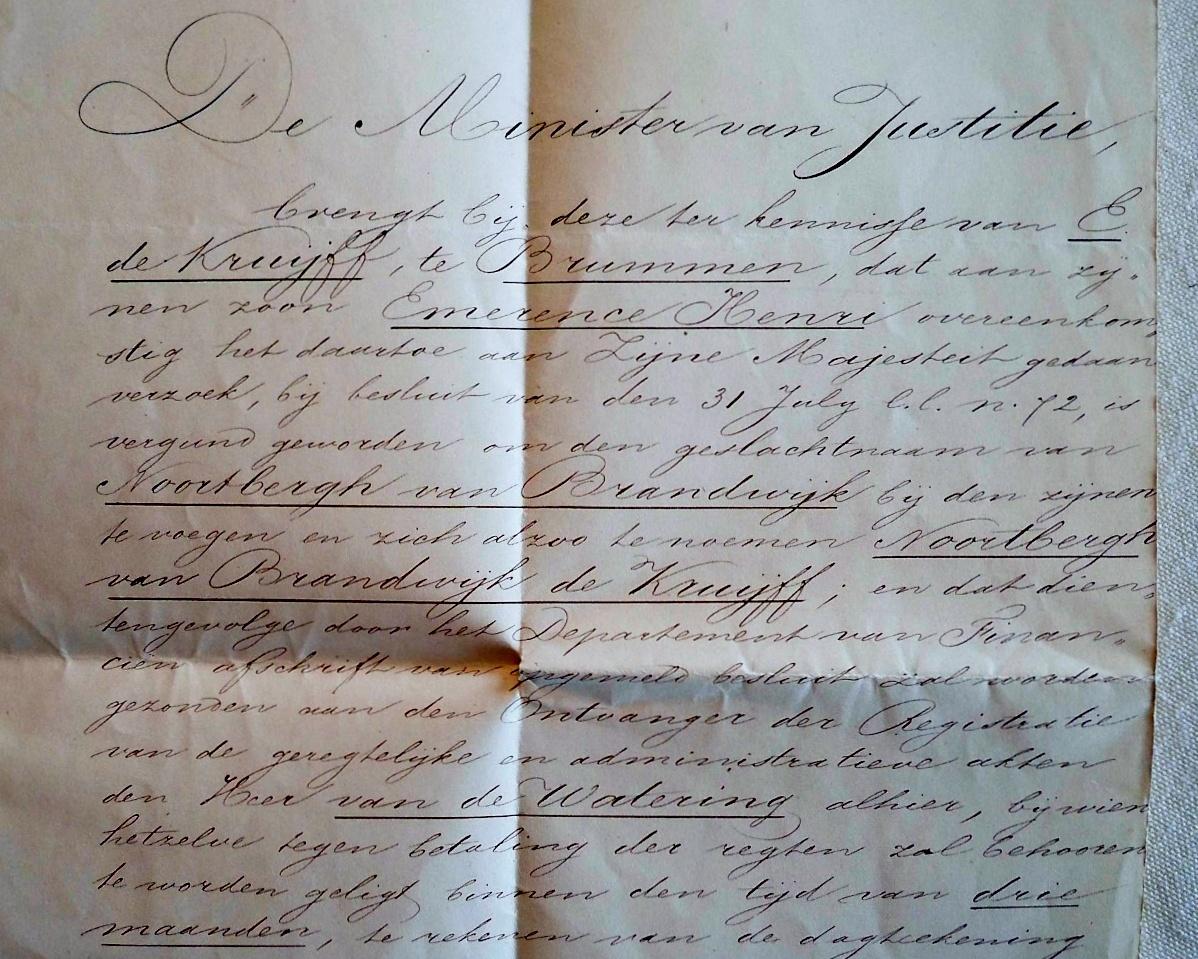 De Minister van Justitie,
brengt bij deze ter kennisse van E.
de Kruijff, te Brummen, dat aan zij„
nen zoon Emerence Henri overeenkom„
stig het daartoe aan Zijne Majesteit gedaan
verzoek, bij besluit van den 31 July l.l. n. 72, is
vergund geworden om den geslachtnaam van
Noortbergh van Brandwijk bij den zijnen
te voegen en zich alzoo te noemen Noortbergh
van Brandwijk de Kruijff; en dat dien„
tengevolge door het Departement van Finan„
ciën afschrift van opgemeld besluit zal worden
gezonden aan den Ontvanger der Registratie
van de geregtelijke en administratieve akten
den Heer van de Watering alhier, bij wien
hetzelve tegen betaling der regten zal behooren
te worden geligt binnen den tijd van drie
maanden, te rekenen van de dagteekening